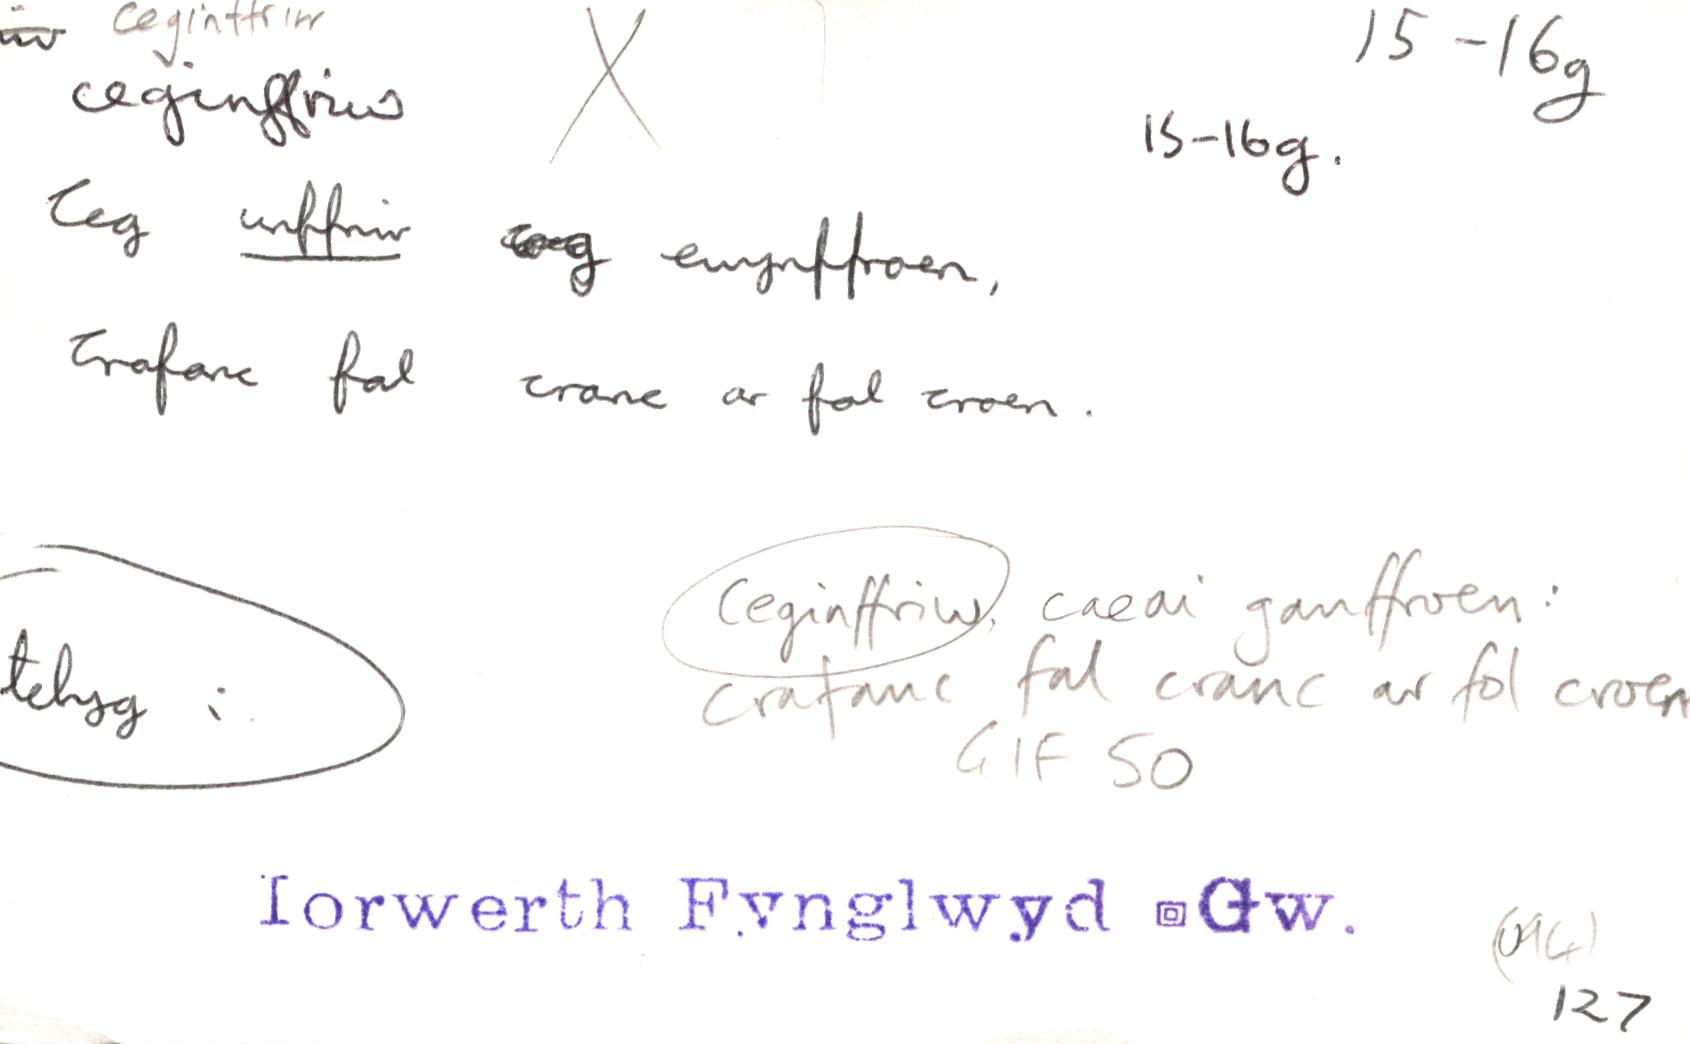 ceginffriw
15-16g
ceginffriw
15-16g.
Ceg inffriw ewynffroen,
Crafanc fal cranc ar fol croen.
Ceginffriw, caeai ganffroen:
crafanc fal cranc ar fol croen
GIF 50
Iorwerth Fynglwyd Gw.
127